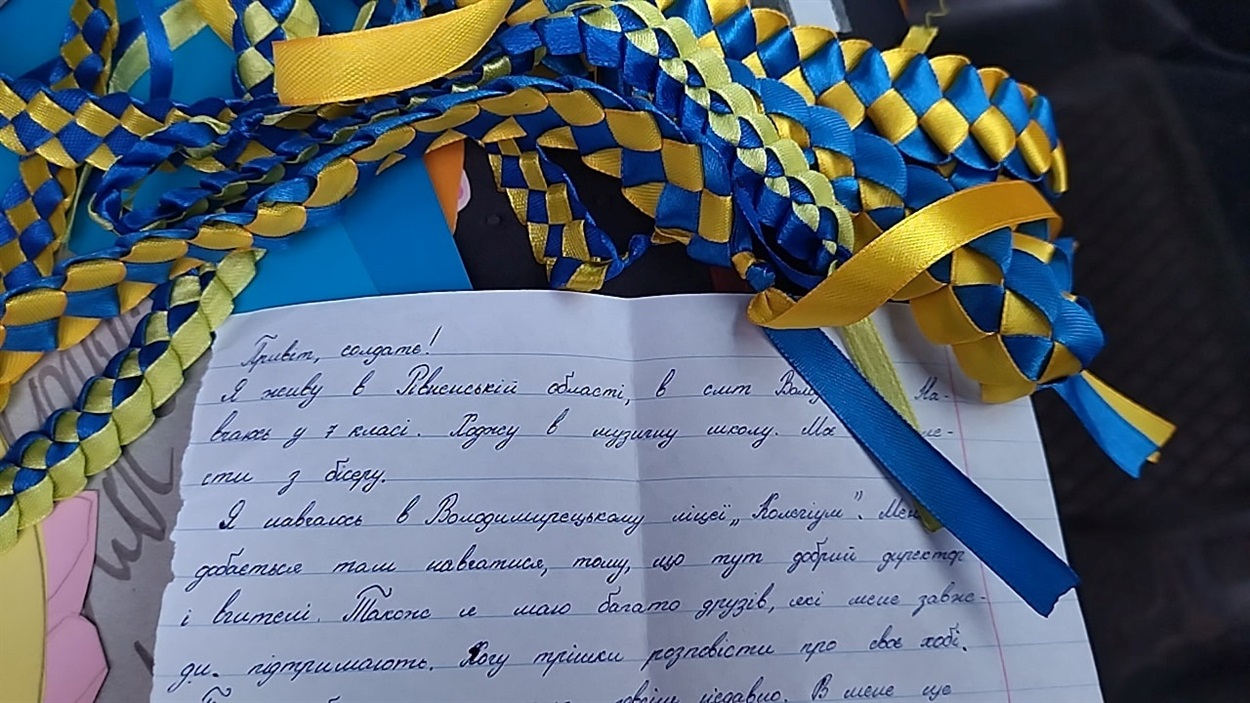 Привіт, солдате!
Я живу в Рівненській області, в смт Воло На-
вчаюсь у 7 класі. Ходжу в музичну школу.
сти з бісеру.
Я навчаюсь в Володимирецькому ліцеї „Колегіум”. Мен
добається там навчатися, тому, що тут добрий директор
і вчителі. Також я маю багато друзів, які мене завж-
ди підтримають. Хочу трішки розповісти про своє хобі.
зовсім недавно. В мене ще